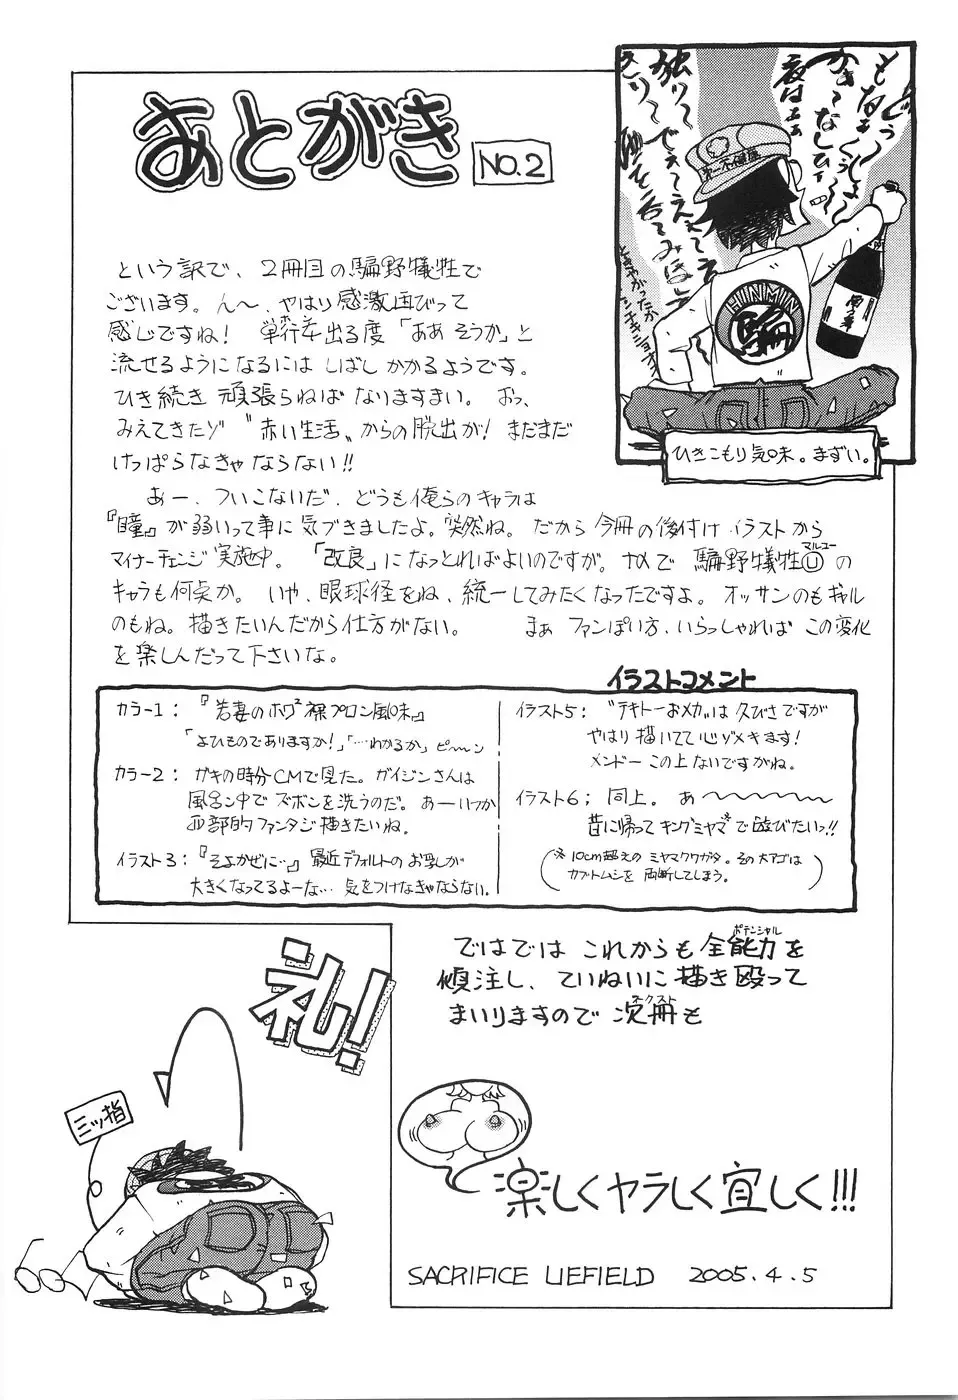 あとがき
NO.2
という訳で、2冊目の騙野犠牲で
ございます。ん〜、やはり感激団びって
感じですね! 単行本出る度「ああそうか」と
流せるようになるには しばし かかるようです。
ひき続き 頑張らねば なりますまい。おっ、
みえてきたゾ "赤い生活"からの脱出が! まだまだ
けっぱらなきゃならない!!
あー、ついこないだ、どうも俺らのキャラは
『瞳』が弱いって事に気づきましたよ。突然ね。だから今冊の後付けイラストから
マイナーチェンジ実施中。「改良」になっとればよいのですが。なので 騙野犠牲Ⓤの
マルユー
キャラも何点か。いや、眼球径をね、統一してみたくなったですよ。オッサンのもギャル
のもね。描きたいんだから仕方がない。 まぁ ファンぽい方、いらっしゃれば この変化
を楽しんだって下さいな。
ひきこもり気味。まずい。
第一不健康
HINMIN
騙
イラストコメント
カラー1: 『若妻のホワ² 裸プロン風味』
「よひものでありますか!」「…わかるか」ピーン
カラー2: ガキの時分CMで見た。ガイジンさんは
風呂ン中で ズボンを洗うのだ。あーいつか
西部的ファンタジ描きたいね。
イラスト3:『そよかぜに…』最近デフォルトのお乳が
大きくなってるよーな… 気をつけなきゃならない。
イラスト5: "テキトーおメカ"は久びさですが
やはり描いてて心ゾメキます!
メンドー この上ないですがね。
イラスト6; 同上。あ〜〜〜〜〜〜
昔に帰って キングミヤマ※で遊びたいっ!!
(※10cm超えの ミヤマクワガタ。その大アゴは
カブトムシを 両断してしまう。)
ではでは これからも全能力を
ポテンシャル
傾注し、ていねいに描き殴って
まいりますので 次冊も
ネクスト
礼!
三ッ指
楽しくヤラしく宜しく!!!
SACRIFICE LIEFIELD 2005.4.5